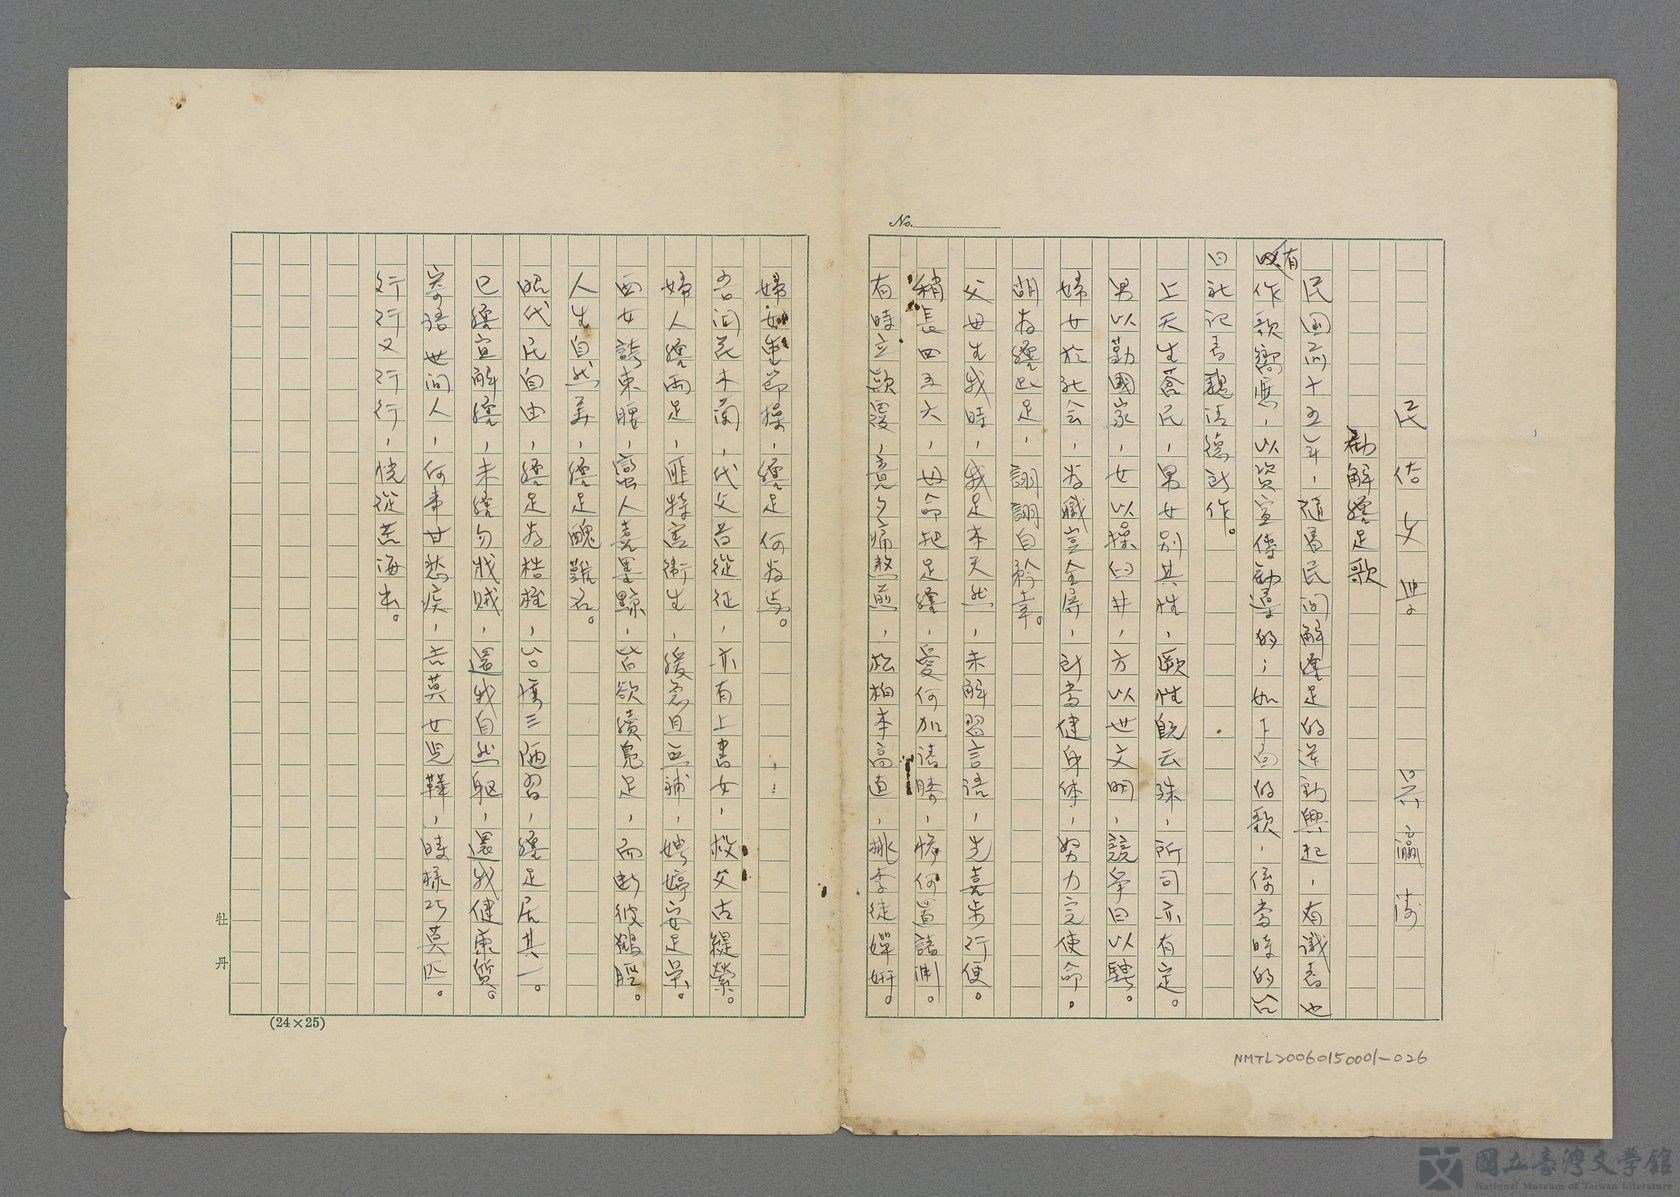 No.
民俗文學 吳瀛濤
勸解纏足歌
民国前十五年，随着民間解纏足的运動興起，有識者也
有作歌嚮應，以資宣傳勸導的；如下面的歌，係當時的台
日社記者魏清德所作。
上天生蒼民，男女別其性，厥性既云殊，所司亦有定。
男以勤國家，女以操臼井，方以世文明，競爭日以騁。
婦女於社会，為職豈全屏，所當健身体，努力完使命。
胡為纏此足，詡詡自矜幸。
父母生我時，我足本天然，未解習言語，先喜步行便。
稍長四五六，母命把足纏，愛何加諸膝，惨何置諸淵。
有時立欹覆，竟夕痛熬煎，松柏本高直，桃李徒嬋妍。
婦女重節操，纏足何為焉。
吾聞花木蘭，代父昔從征，亦有上書女，救父古緹縈。
婦人纏兩足，匪特害衛生，緩急且無補，娉婷安足榮。
西女誇束腰，蠻人喜墨黥，皆欲續鳧足，而断彼鶴脛。
人生自然美，纏足醜難名。
昭代民自由，纏足為桎梏，台湾三陋習，纏足居其一。
已纏宜解纏，未纏勿戕賊，還我自然軀，還我健康質。
寄語世间人，何事甘愁疾，吉莫女児鞾，時樣巧莫匹。
行行又行行，恍從苦海出。
(24×25)
牡丹
NMTL20060150001-026
國立臺灣文學館
National Museum of Taiwan Literature